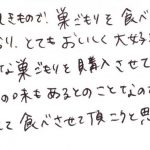 しきもので、巣ごもりを食べ
り、とてもおいしく大好
な巣ごもりを購入させて
の味もあるとのことなので
て食べさせて頂こうと思